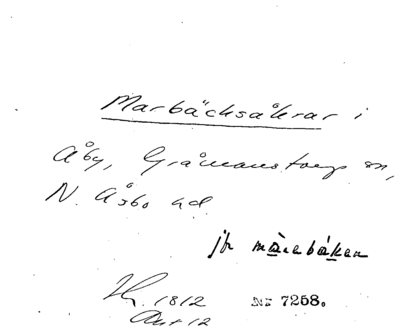 Marbäcksåkrar i
Åby, Gråmanstorps sn,
N. Åsbo hd.
jfr märebäken
1812
№ 7258.
Akt 12